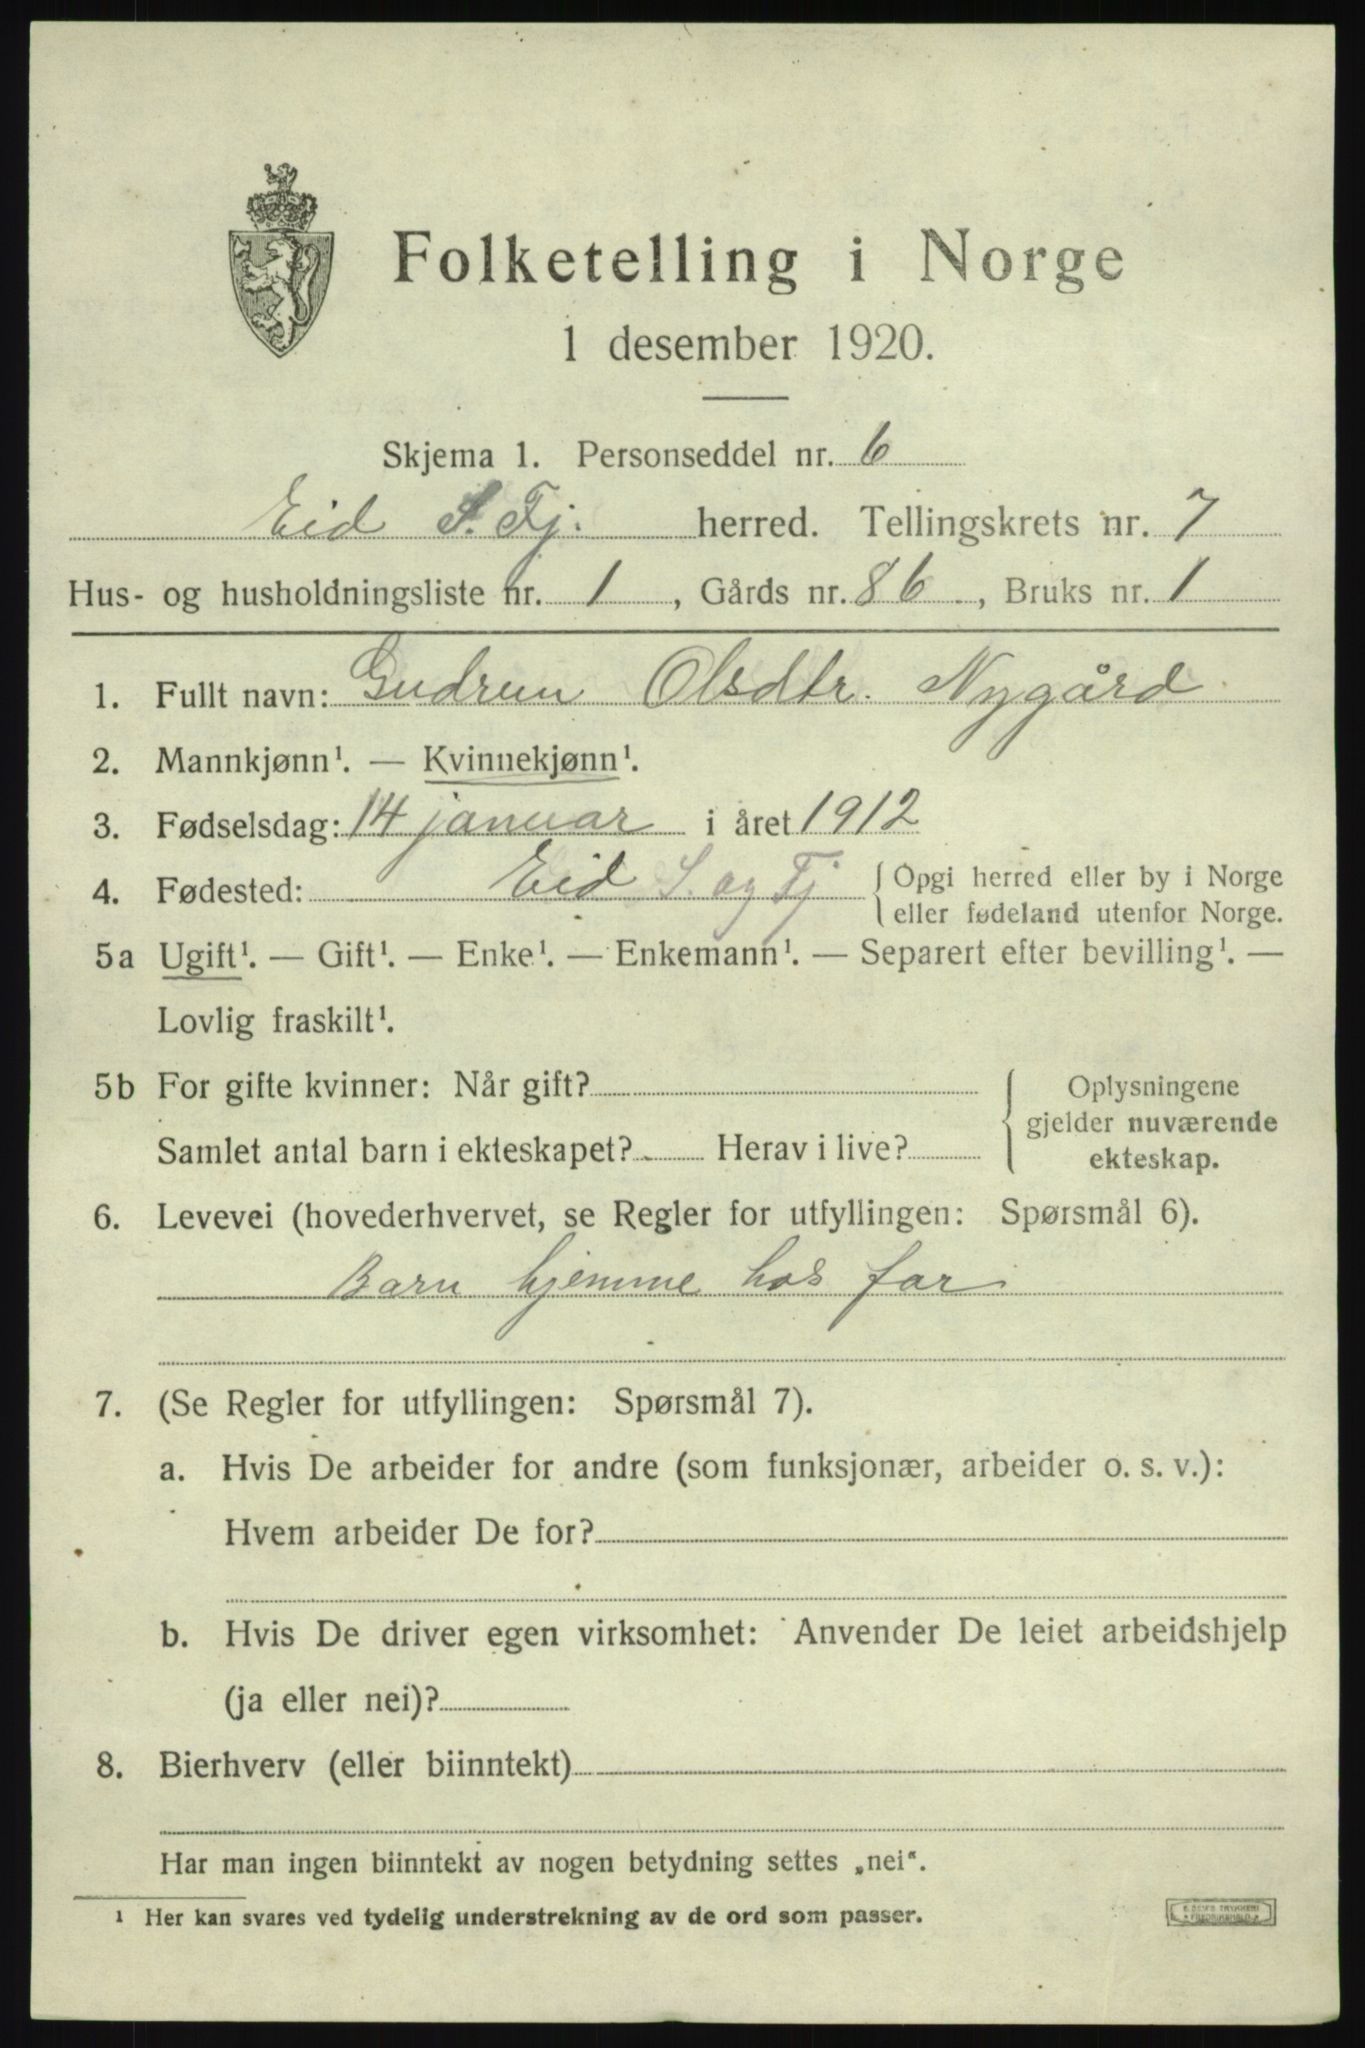 Folketelling i Norge
1 desember 1920.
Skjema 1. Personseddel nr. 6
Eid S. Fj. herred. Tellingskrets nr. 7
Hus- og husholdningsliste nr. 1, Gårds nr. 86, Bruks nr. 1
1. Fullt navn: Gudrun Olsdtr. Nygård
2. Mannkjønn¹. — Kvinnekjønn¹.
3. Fødselsdag: 14 januar i året 1912
4. Fødested: Eid S. og Fj { Opgi herred eller by i Norge
eller fødeland utenfor Norge.
5a Ugift¹. — Gift¹. — Enke¹. — Enkemann¹. — Separert efter bevilling¹. —
Lovlig fraskilt¹.
5b For gifte kvinner: Når gift? { Oplysningene
gjelder nuværende
Samlet antal barn i ekteskapet? Herav i live? ekteskap.
6. Levevei (hovederhvervet, se Regler for utfyllingen: Spørsmål 6).
Barn hjemme hos far
7. (Se Regler for utfyllingen: Spørsmål 7).
a. Hvis De arbeider for andre (som funksjonær, arbeider o. s. v.):
Hvem arbeider De for?
b. Hvis De driver egen virksomhet: Anvender De leiet arbeidshjelp
(ja eller nei)?
8. Bierhverv (eller biinntekt)
Har man ingen biinntekt av nogen betydning settes „nei“.
¹ Her kan svares ved tydelig understrekning av de ord som passer.